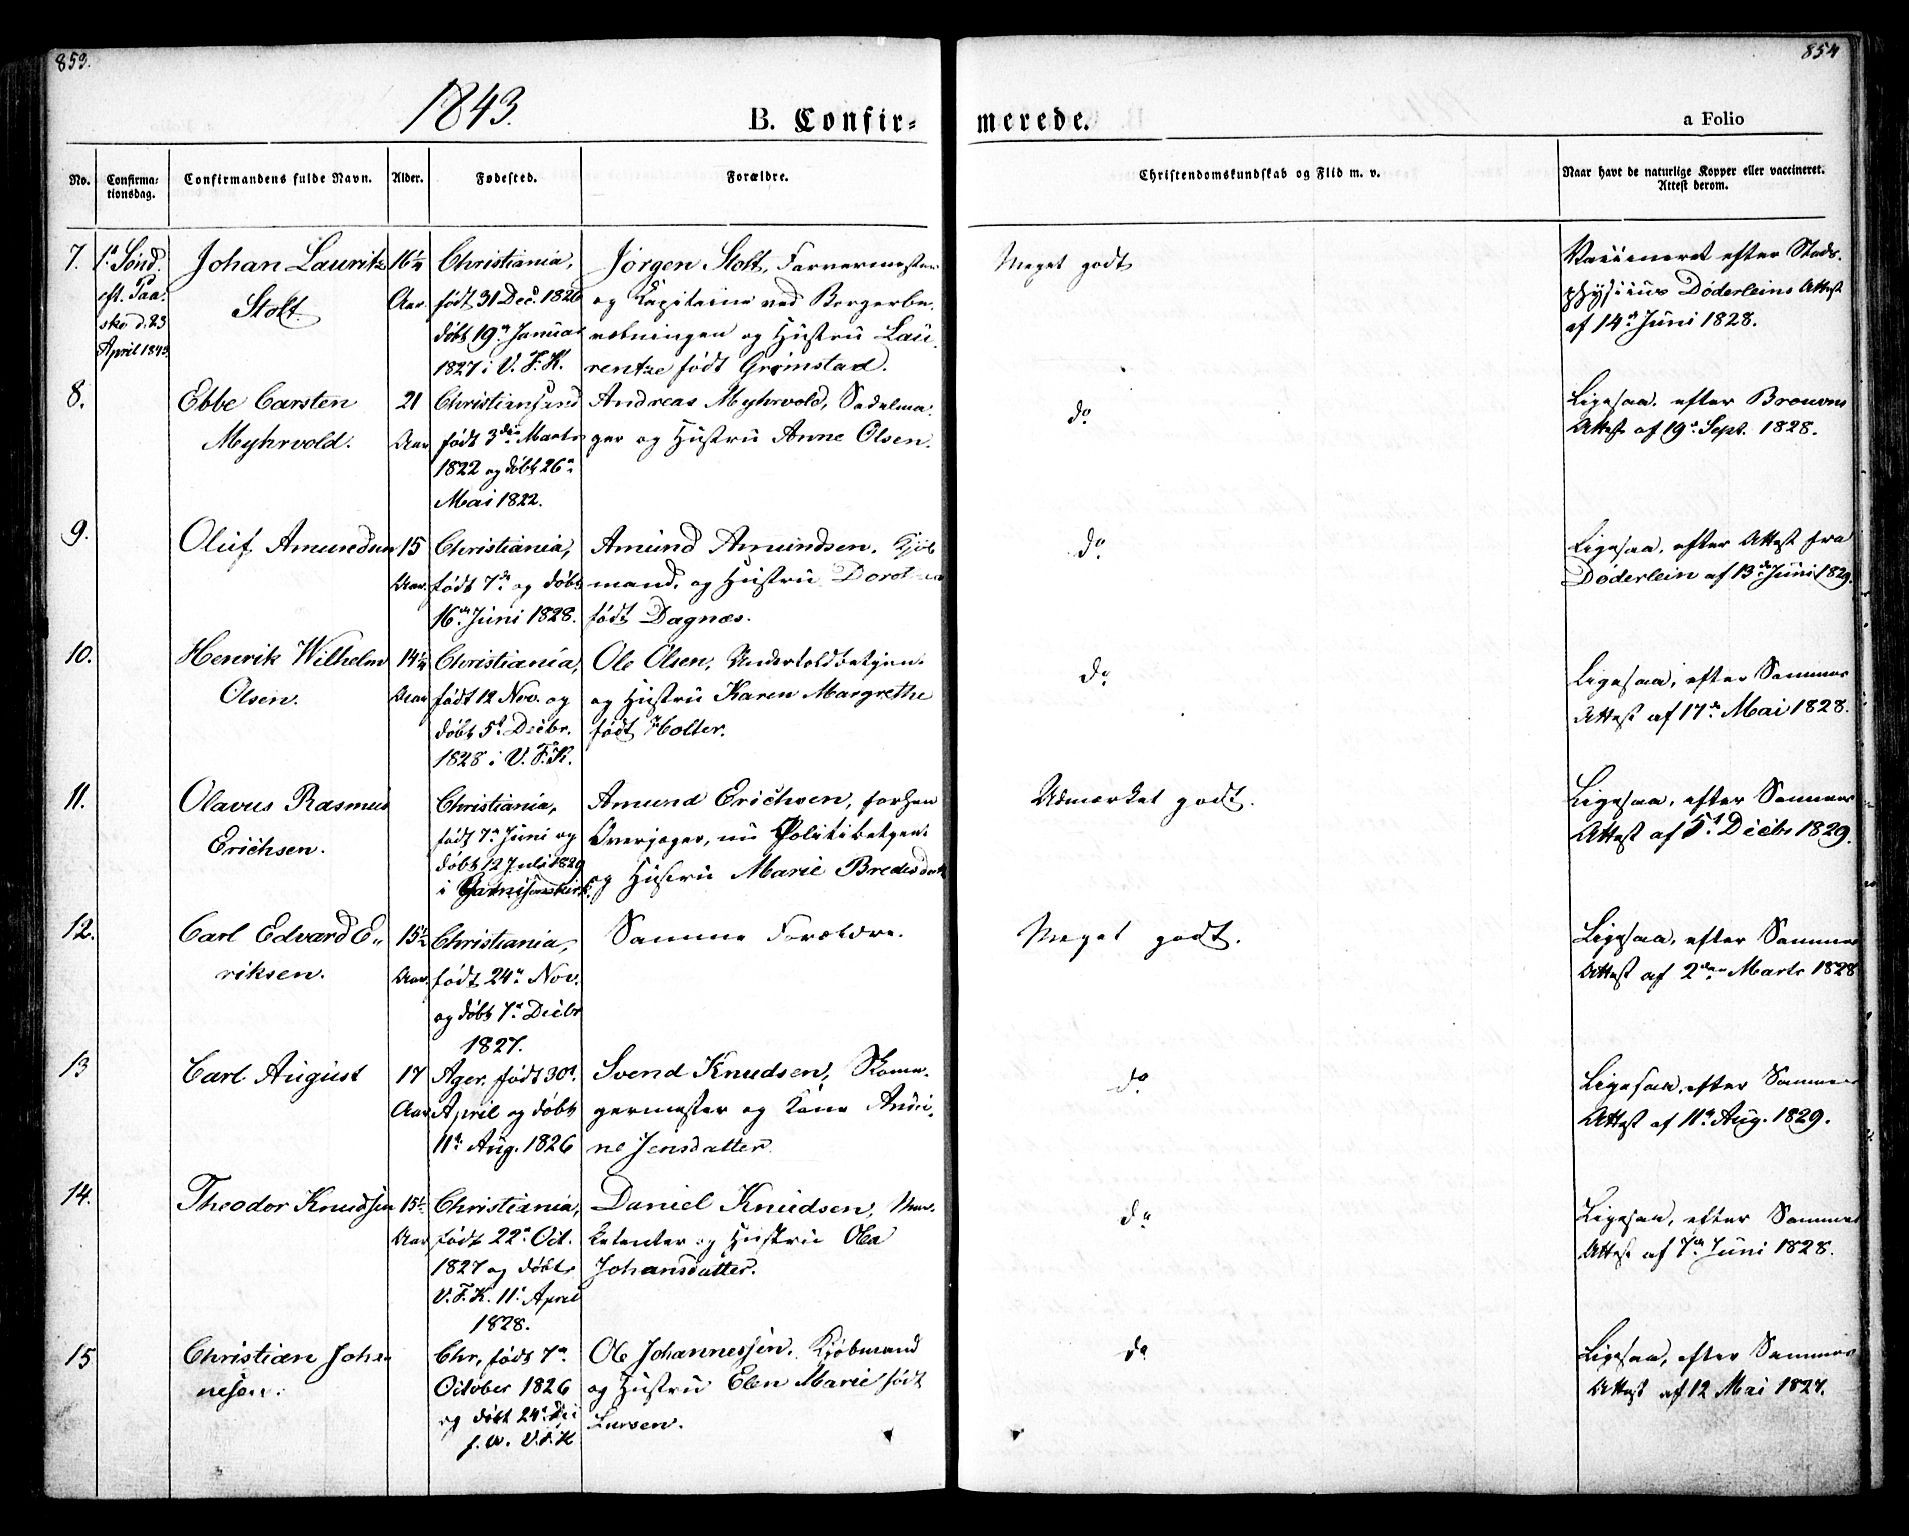 853.
854
1843.
B. Confir-
merede.
a Folio
No.
Confirma-
tionsdag.
Confirmandens fulde Navn.
Alder.
Fødested.
Forældre.
Christendomskundskab og Flid m. v.
Naar havt de naturlige Kopper eller vaccineret.
Attest derom.
7.
1ste Sønd.
eft. Paa-
ske d. 23
April 1843.
Johan Lauritz
Stolt.
16 1/4
Aar
Christiania,
født 31 Dec. 1826
døbt 19de Januar
1827 i V. F. K.
Jørgen Stolt, Farvermester
og Kapitaine ved Borgerbe-
væbningen og Hustru Lau-
rentze født Grimstad.
Meget godt
Vaccineret efter Stads-
physicus Døderleins Attest
af 14de Juni 1828.
8.
Ebbe Carsten
Myhrvold.
21
Aar
Christiansand
født 3die Marts
1822 og døbt 26de
Mai 1822.
Andreas Myhrvold, Sadelma-
ger og Hustru Anne Olsen.
do
Ligesaa, efter
Attest af 19de Sept. 1828.
9.
Oluf Amundsen
15
Aar.
Christiania,
født 7de og døbt
16de Juni 1828.
Amund Amundsen, Kjøb
mand, og Hustru Dorothea
født Dagnæs.
do
Ligesaa, efter Attest fra
Døderlein af 13de Juni 1829.
10.
Henrik Wilhelm
Olsen.
14 1/4
Aar
Christiania,
født 12 Nov. og
døbt 5t Decbr.
1828 i V. F. K.
Ole Olsen, Undertoldbetjen-
og Hustru Karen Margrethe
født Holter.
do
Ligesaa, efter Sammes
Attest af 17de Mai 1828.
11.
Olavus Rasmus
Erichsen.
Christiania,
født 7de Juni og
døbt 12 Juli 1829
i Garnisonskirk.
Amund Erichsen, forhen
Overjæger, nu Politibetjen-
og Hustru Marie
Udmærket godt.
Ligesaa, efter Sammes
Attest af 5t Decbr 1829.
12.
Carl Edvard E-
riksen.
15 1/2
Aar.
Christiania,
født 24de Nov.
og døbt 7de Decbr
1827.
Samme Forældre.
Meget godt.
Ligesaa, efter Sammes
Attest af 2den Marts 1828
13
Carl August
17
Aar
Ager, født 30t
April og døbt
11te Aug. 1826
Svend Knudsen, Skoma-
germester og Kone Andri-
ne Jensdatter.
do
Ligesaa, efter Sammes
Attest af 11te Aug. 1829.
14.
Theodor Knudsen
15 1/2
Aar
Christiania,
født 22de Oct.
1827 og døbt
V. F. K. 11t April
1828.
Daniel Knudsen, Mar-
ketenter og Hustru Olea
Johansdatter.
do
Ligesaa, efter Sammes
Attest af 7de Juni 1828.
15
Christian Johan
nesen.
Chr, født 7de
October 1826
og døbt 24de Dec
s. A. V. F. K
Ole Johannessen, Kjøbmand
og Hustru Elen Marie født
Larsen.
do
Ligesaa, efter Sammes
Attest af 12 Mai 1827.